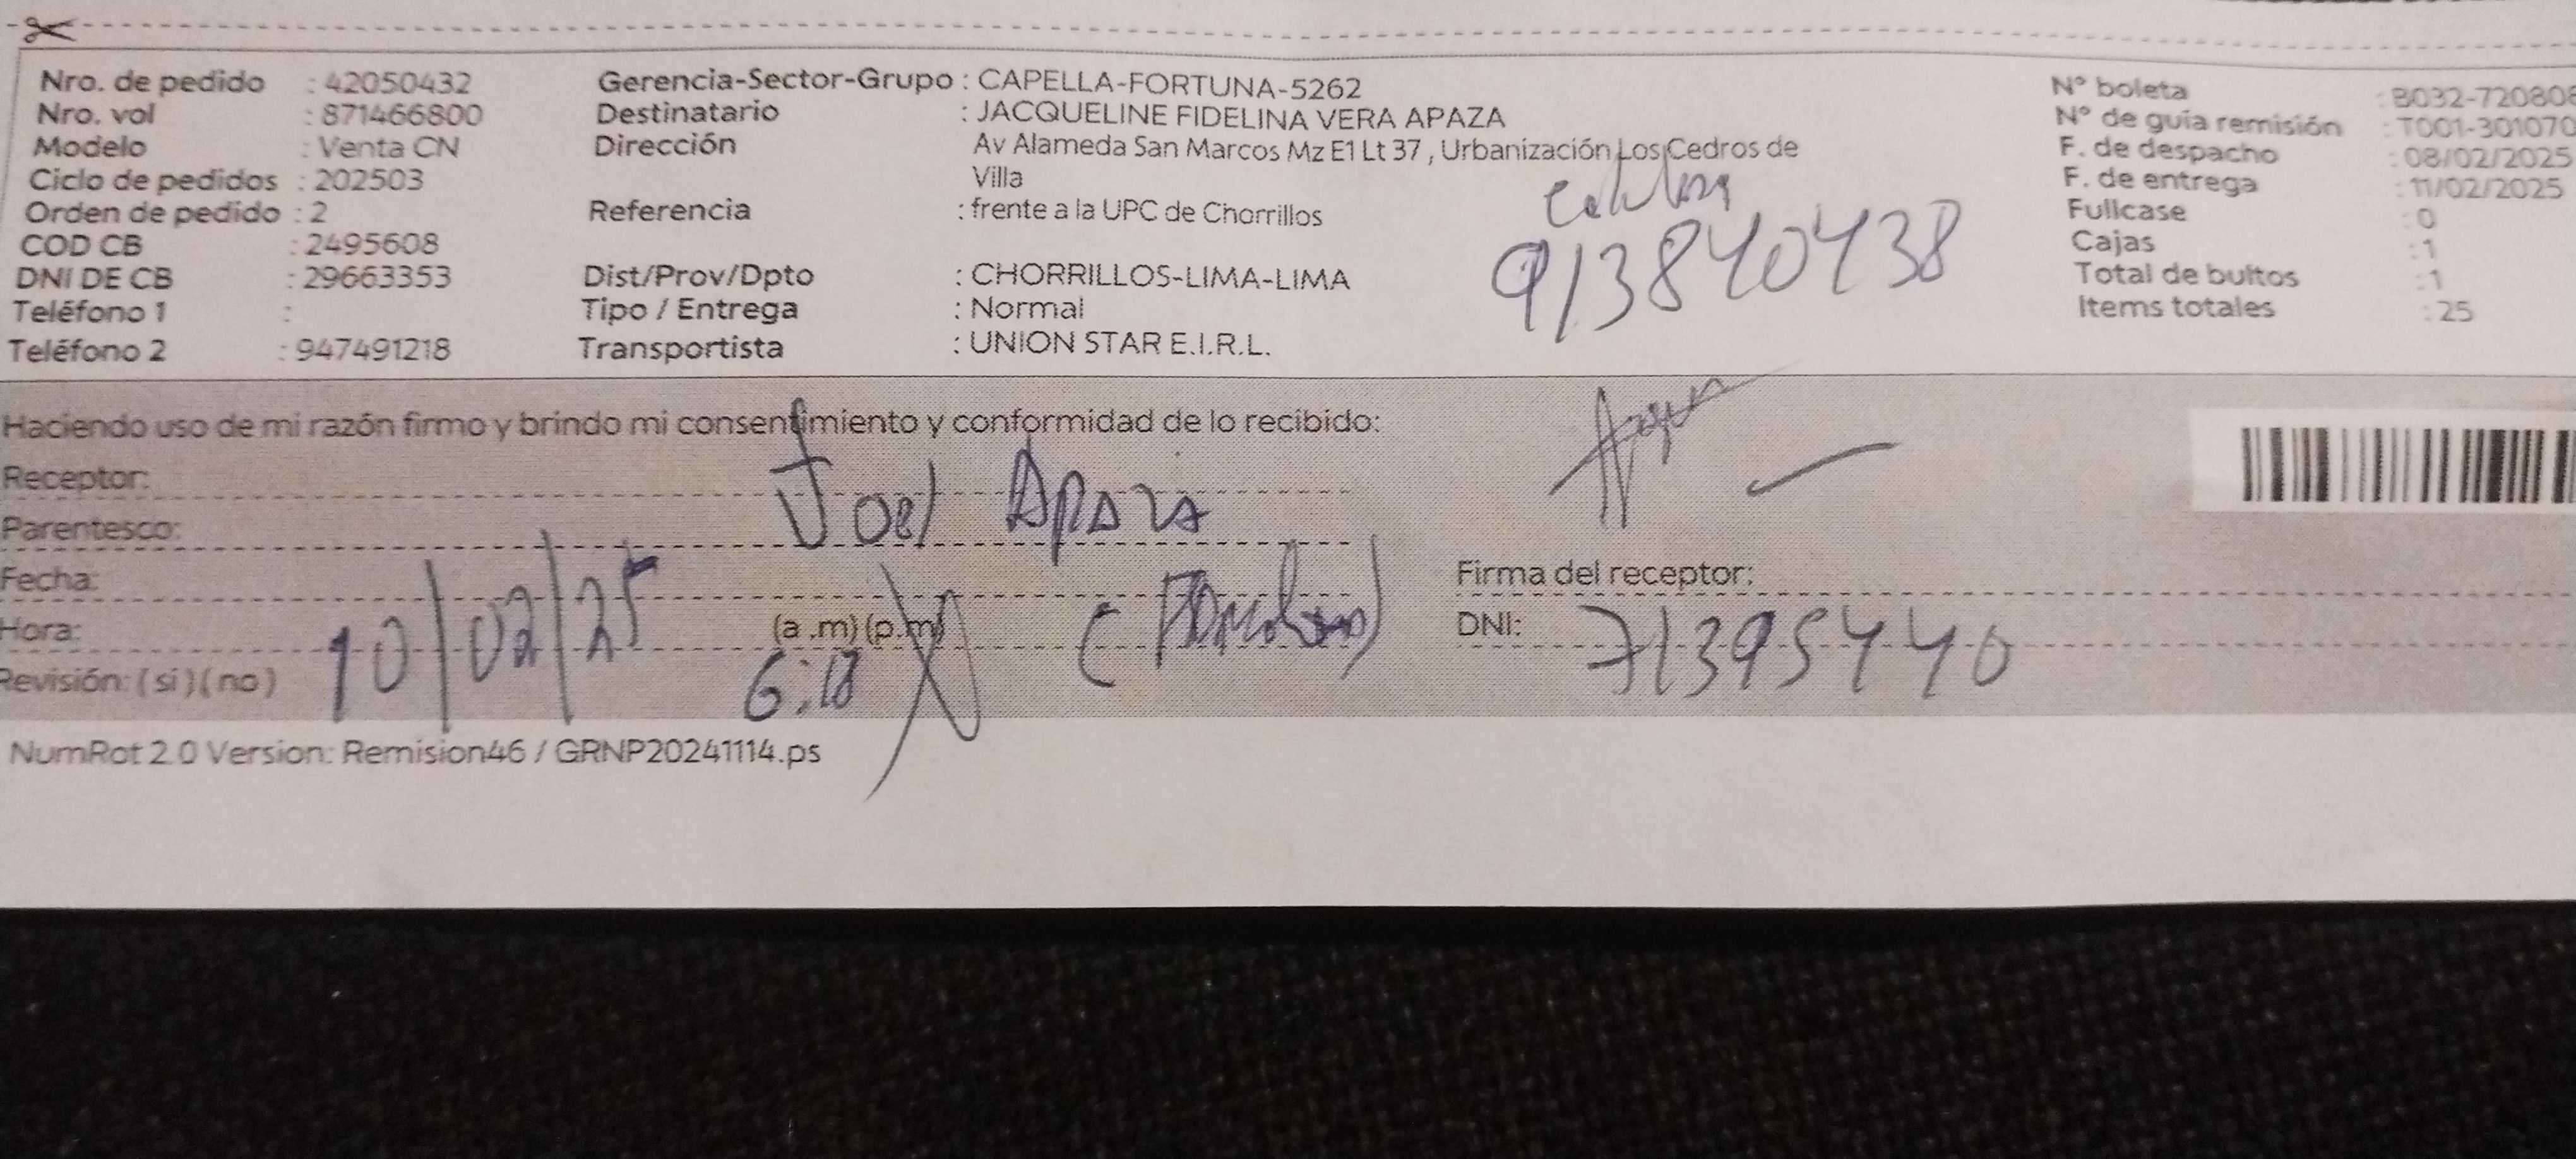 Nro. de pedido : 42050432
Nro. vol : 871466800
Modelo : Venta CN
Ciclo de pedidos : 202503
Orden de pedido : 2
COD CB : 2495608
DNI DE CB : 29663353
Teléfono 1 :
Teléfono 2 : 947491218
Gerencia-Sector-Grupo : CAPELLA-FORTUNA-5262
Destinatario : JACQUELINE FIDELINA VERA APAZA
Dirección Av Alameda San Marcos Mz E1 Lt 37 , Urbanización Los Cedros de
Villa
Referencia : frente a la UPC de Chorrillos
Dist/Prov/Dpto : CHORRILLOS-LIMA-LIMA
Tipo / Entrega : Normal
Transportista : UNION STAR E.I.R.L.
913840438
N° boleta : B032-720808
N° de guia remisión : T001-301070
F. de despacho : 08/02/2025
F. de entrega : 11/02/2025
Fullcase : 0
Cajas : 1
Total de bultos : 1
Items totales : 25
Haciendo uso de mi razón firmo y brindo mi consentimiento y conformidad de lo recibido:
Receptor:
Joel Apaza
Parentesco:
Fecha:
Hora: (a .m) (p.m)
10/02/25
6:18
Revisión: ( si ) ( no )
Firma del receptor:
DNI: 71395440
NumRot 2.0 Version: Remision46 / GRNP20241114.ps